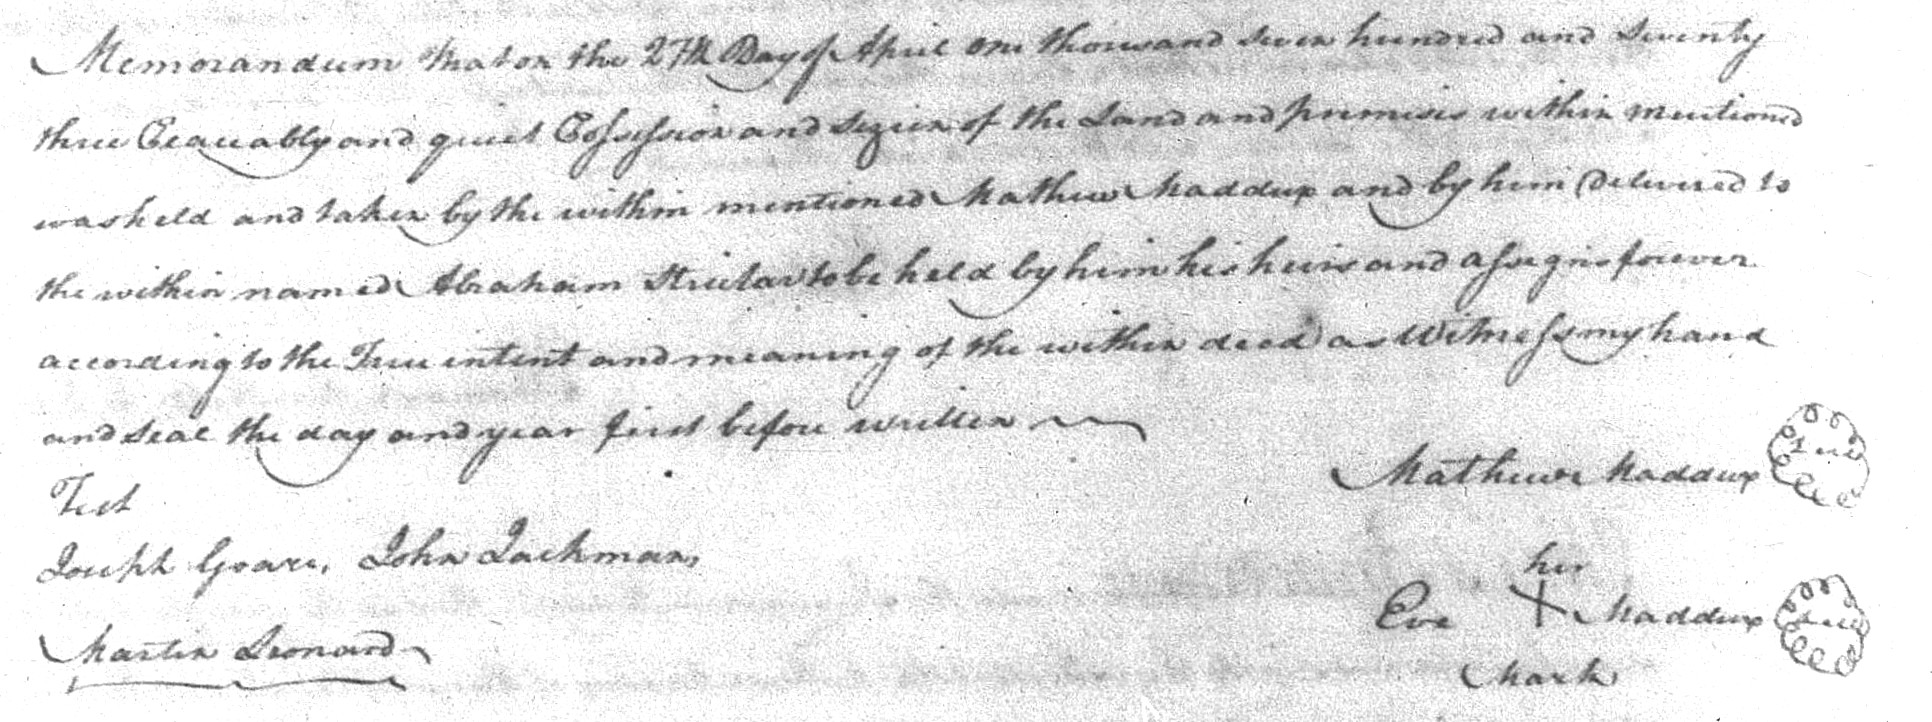 Memorandum that on the 27th Day of April one thousand seven hundred and Seventy
three Peaceably and quiet Possession and Sezien of the Land and premises within mentioned
was held and taken by the within mentioned Mathew Maddux and by him Delivered to
the within named Abraham to be held by him his heirs and assigns forever
according to the True intent and meaning of the within deed as Witness my hand
and seal the day and year first before written
Test
Mathew Maddux Seal
Joseph John Jackman,
her
Eve X Maddux Seal
Martin Leonard
Mark